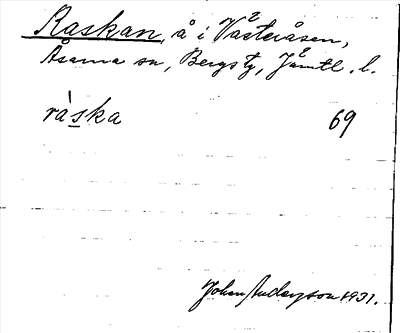 Raskan, å i Västeråsen,
Åsarna sn, Bergs tg, Jämtl. l.
ràska 69
Johan Anderson 1931.